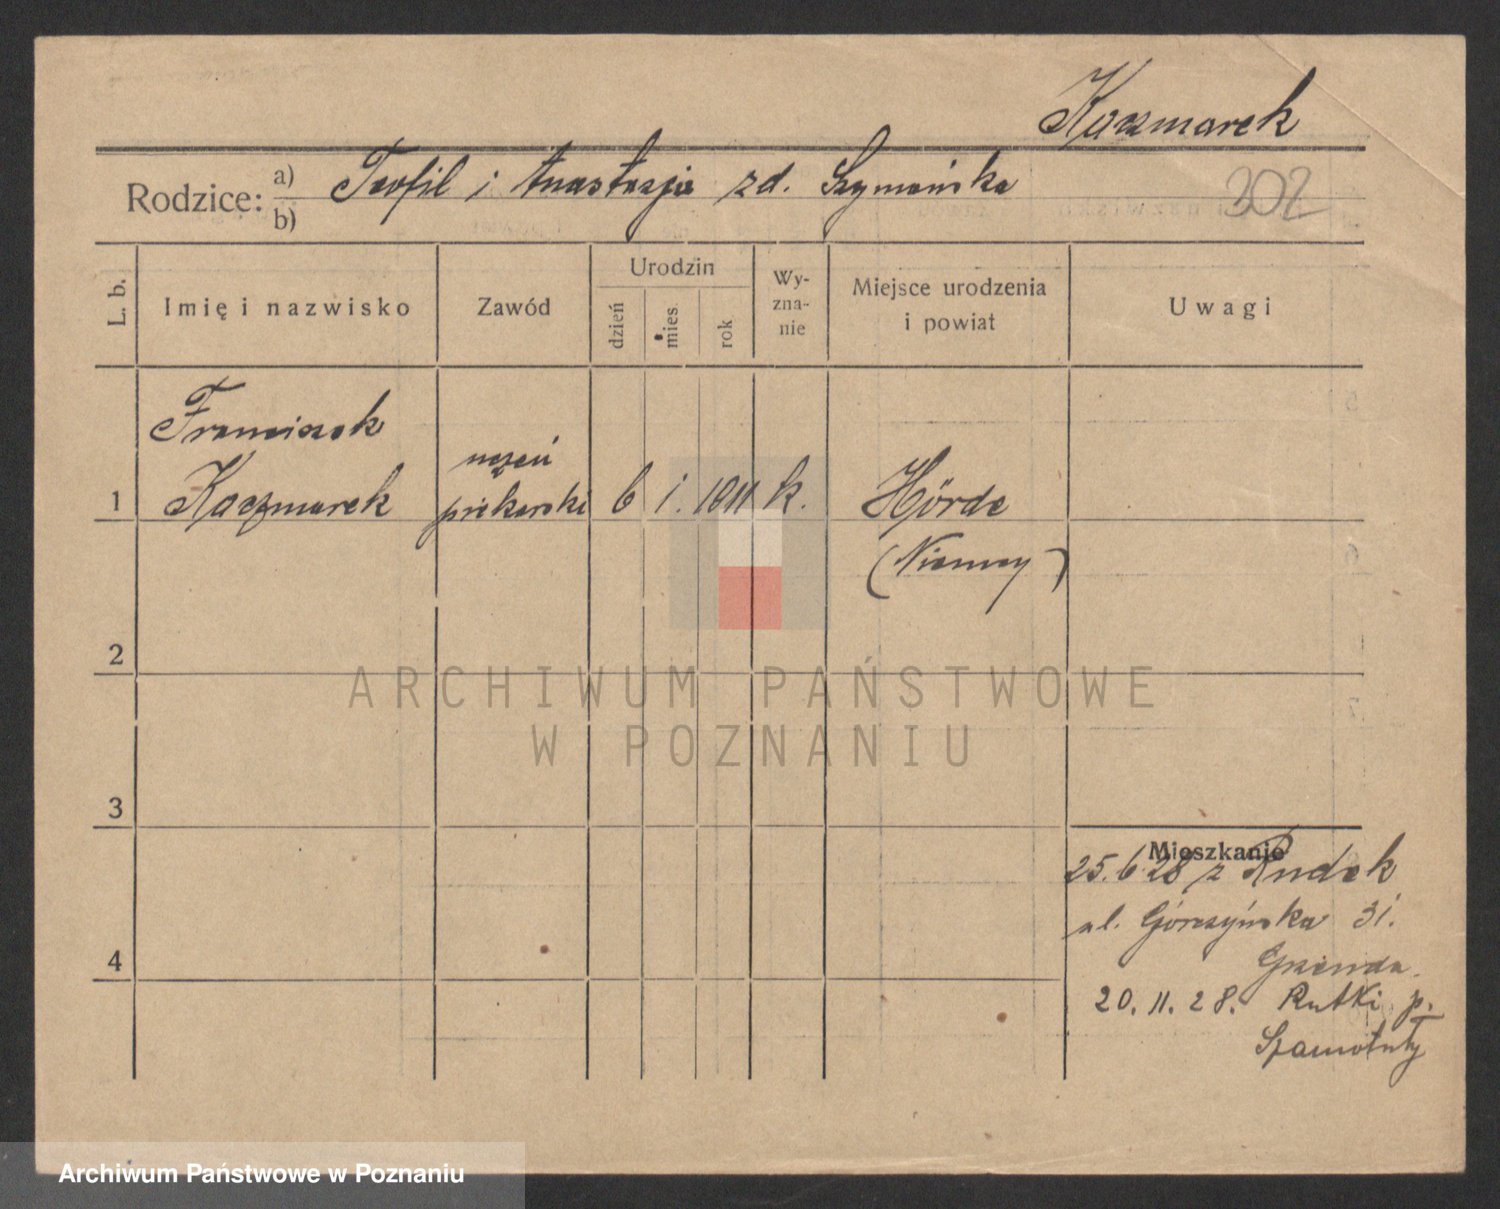 Kaczmarek
Rodzice: a) b) Teofil i Anastazja zd. Szymańska
302
L. b. Imię i nazwisko Zawód Urodzin dzień mies. rok Wyznanie Miejsce urodzenia i powiat Uwagi
Franciszek
Kaczmarek
uczeń
piekarski
1 6 1. 1911 k. Hörde
(Niemcy)
2
ARCHIWUM PAŃSTWOWE
W POZNANIU
3
Mieszkanie
25.6 28 z Rudek
ul. Górczyńska 31.
4
20. 11. 28. Rutki p.
Szamotuły
Archiwum Państwowe w Poznaniu